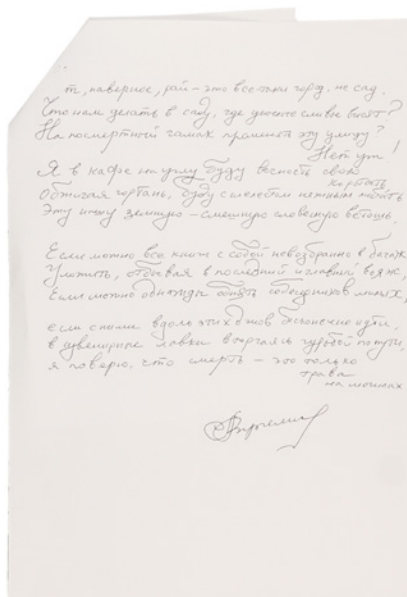 т, наверное, рай – это все-таки город, не сад.
Что нам делать в саду, где сливы висят?
На посмертный гамак променять эту улицу?
Нет уж!
Я в кафе на углу буду вечность свою
коротать,
Обжигая гортань, буду с шелестом нежным листать
Эту иную земную – смешную словесную ветошь.
Если можно все книги с собой невозбранно в багаж
Уложить, отбывая в последний и главный вояж,
Если можно однажды обнять собеседников милых,
если с ними вдоль этих домов бесконечно идти,
в сувенирные лавки втираясь гурьбой по пути,
я поверю, что смерть – это только
трава
на могилах